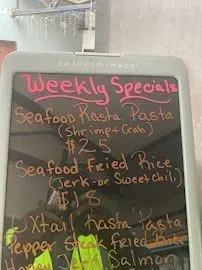 SHARPER IMAGE
Weekly Specials
Seafood Rasta Pasta
(Shrimp + Crab)
$25
Seafood Fried Rice
(Jerk - or Sweet Chili)
$18
Oxtail Rasta Pasta
Pepper Steak Fried Rice
Honey Jerk Salmon